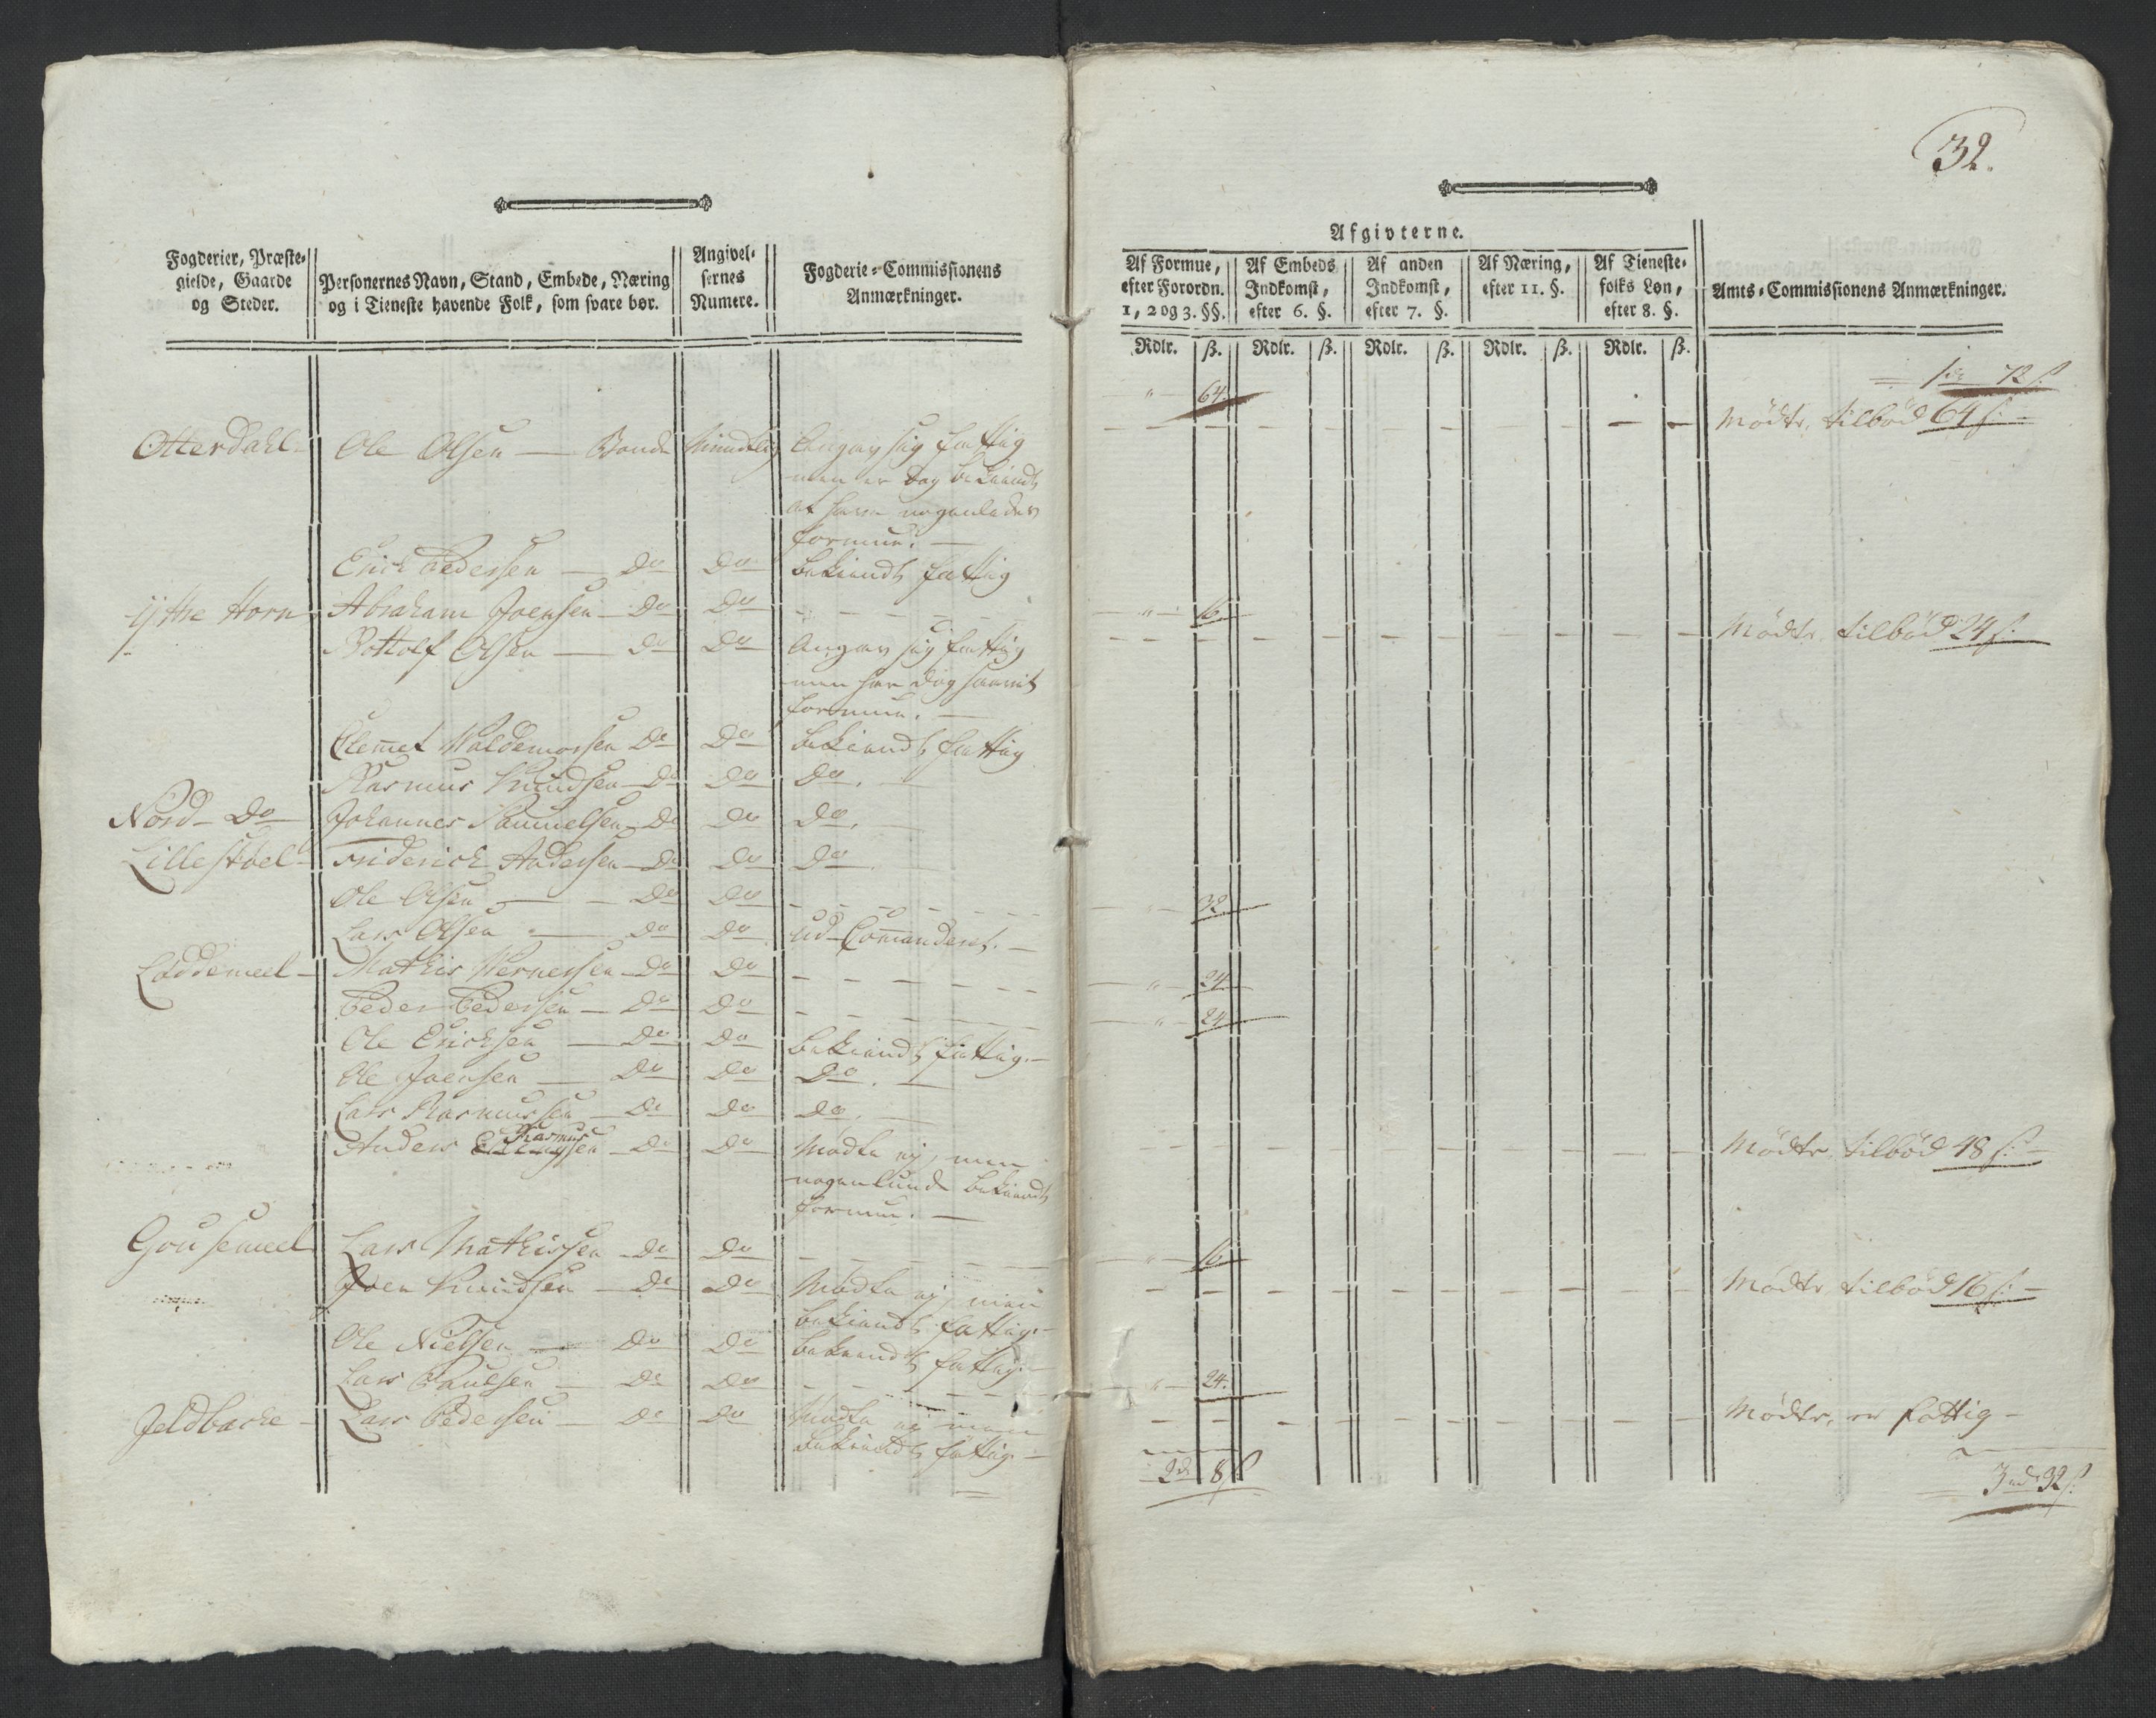 32.
Afgivterne.
Fogderier, Præste-
gielde, Gaarde
og Steder.
Personernes Navn, Stand, Embede, Næring
og i Tieneste havende Folk, som svare bør.
Angivel-
sernes
Numere.
Fogderie-Commissionens
Anmærkninger.
Af Formue,
efter Forordn.
1, 2 og 3. §§.
Af Embeds
Indkomst,
efter 6. §.
Af anden
Indkomst,
efter 7. §.
Af Næring,
efter 11. §.
Af Tieneste-
folks Løn,
efter 8. §.
Amts-Commissionens Anmærkninger.
Rdlr. ß. Rdlr. ß. Rdlr. ß. Rdlr. ß. Rdlr. ß.
" 64. 1 rdr 72 ß.
Otterdahl Ole Olsen — Bonde Mundtlig Angav sig fattig Mødte, tilbød 64 ß.
men er dog bekiendt
at have nogenledes
formue. —
Erich Pedersen — Do Do bekiendt fattig
Ytthe Horn Abraham Joensen — Do Do - - - " 16.
Bottolf Olsen — Do Do Angav sig fattig Mødte tilbød 24 ß.
men har dog saavit
formue. —
Clemet Waldemorsen Do Do bekiendt fattig
Rasmus Knudsen — Do Do Do.
Nord - Do Johannes Samuelsen Do Do Do.
Lillestøel Friderich Andersen — Do Do Do
Ole Olsen — Do Do - - - " 32
Lars Olsen — Do Do ud-Commanderet. —
Loddemeel — Mathis Wernersen — Do Do - - - " 24
Peder Pedersen — Do Do - - - " 24
Ole Erichsen — Do Do bekiendt fattig. —
Ole Joensen — Do Do Do. —
Lars Rasmussen — Do Do Do.
Rasmus
Anders sen — Do Do Mødte ej, men Mødte tilbød 48 ß.
nogenlunde bekiendt
formue. —
Gousemeel Lars Mathissen — Do Do - - - " 16
Joen Knudsen — Do Do Mødte ej, men Mødte tilbød 16 ß. —
bekiendt fattig. —
Ole Nielsen — Do Do bekiendt fattig. —
Lars Paulsen — Do Do - - - " 24.
Jeldbacke — Lars Pedersen — Do Do Mødte ej men Mødte, er fattig —
bekiendt fattig. —
2 d 8 ß 3 rd 32 ß.